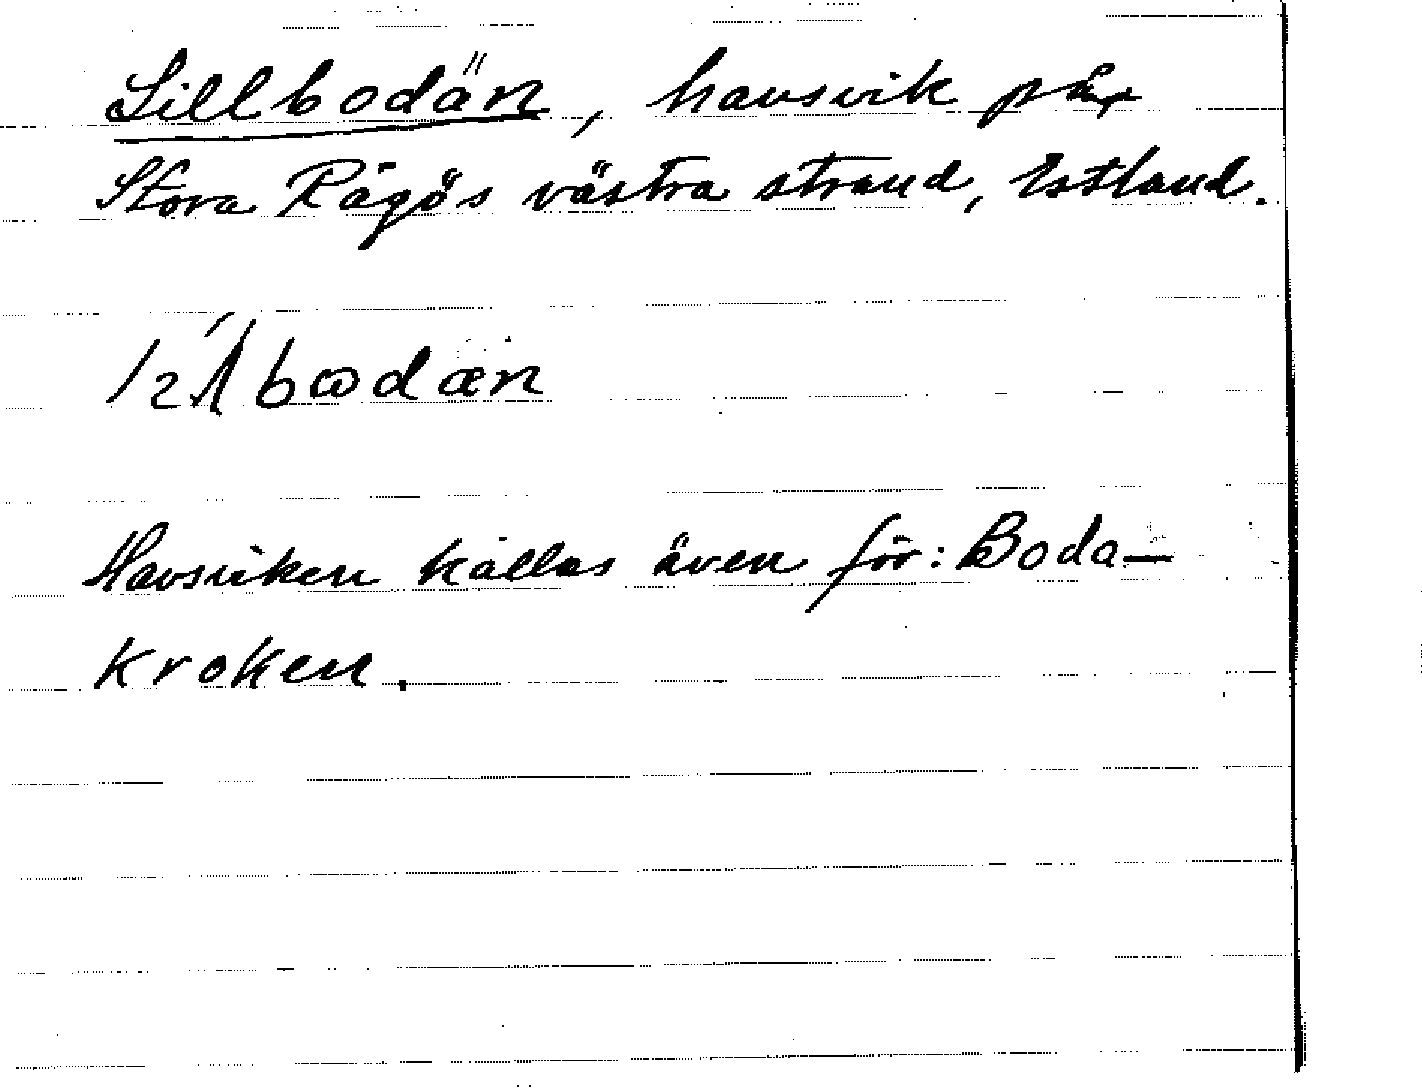 Lillbodän, havsvik på
Stora Rågös västra strand, Estland.
Havsviken kallas även för: Boda-
kroken.